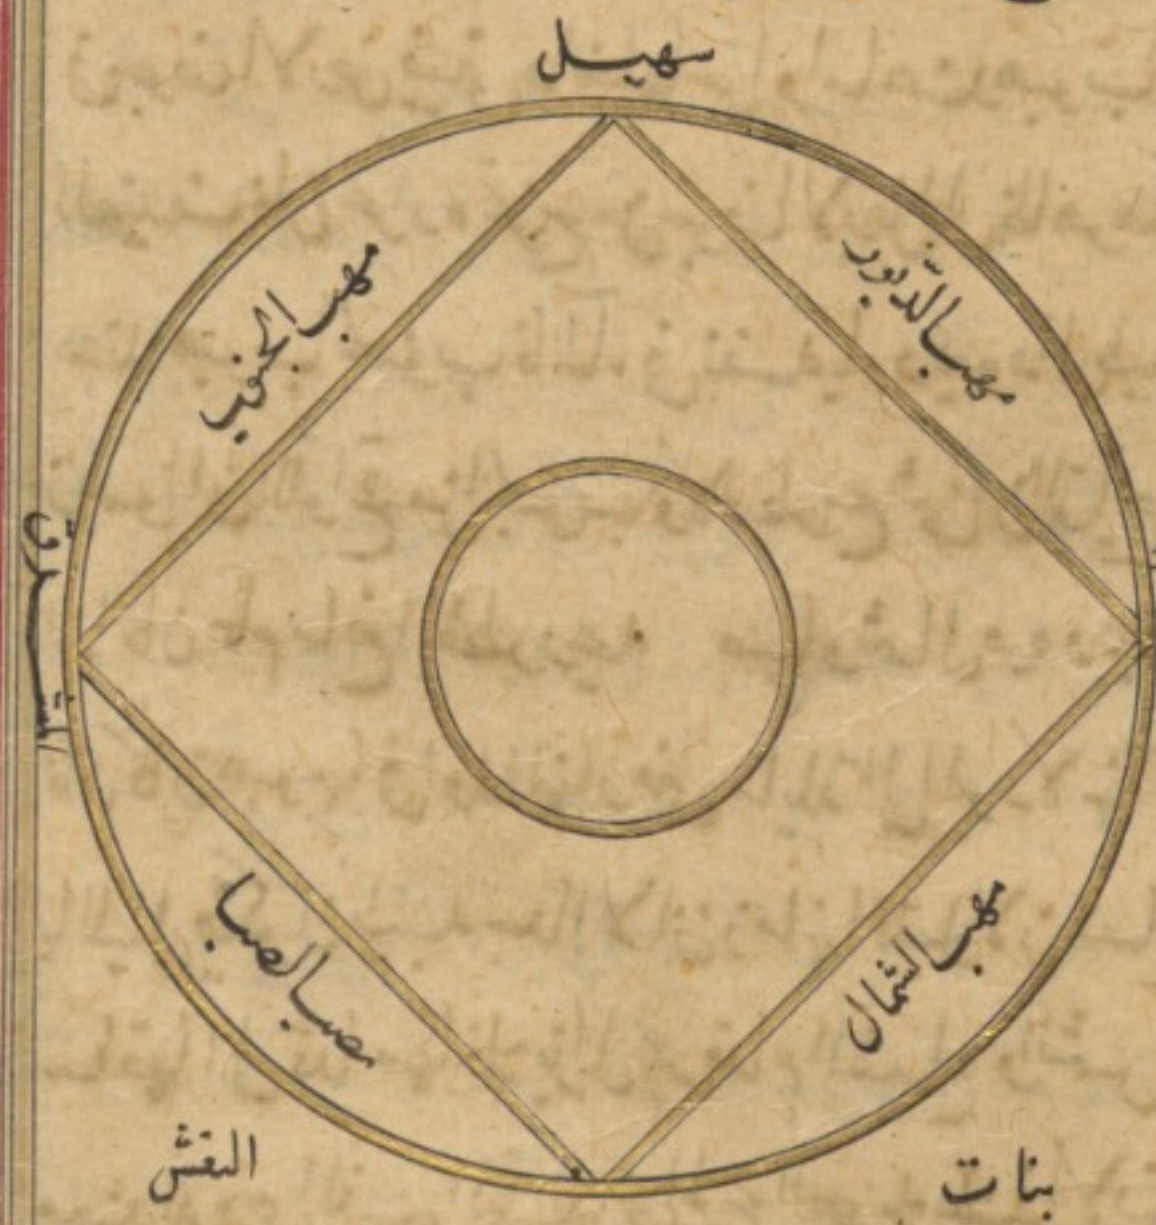 سهيل
مهب الدبور
مهب الجنوب
المشرق
مهب الشمال
مصب الصبا
بنات
النقش